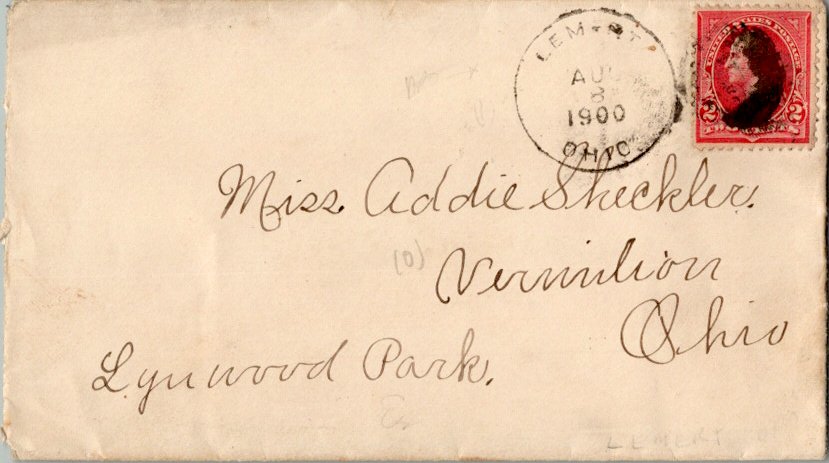 LEMERT
AUG
8
1900
OHIO
UNITED STATES POSTAGE
2 2
Miss. Addie Sheckler.
(0)
Vermilion
Ohio
Lynwood Park.
LEMERT